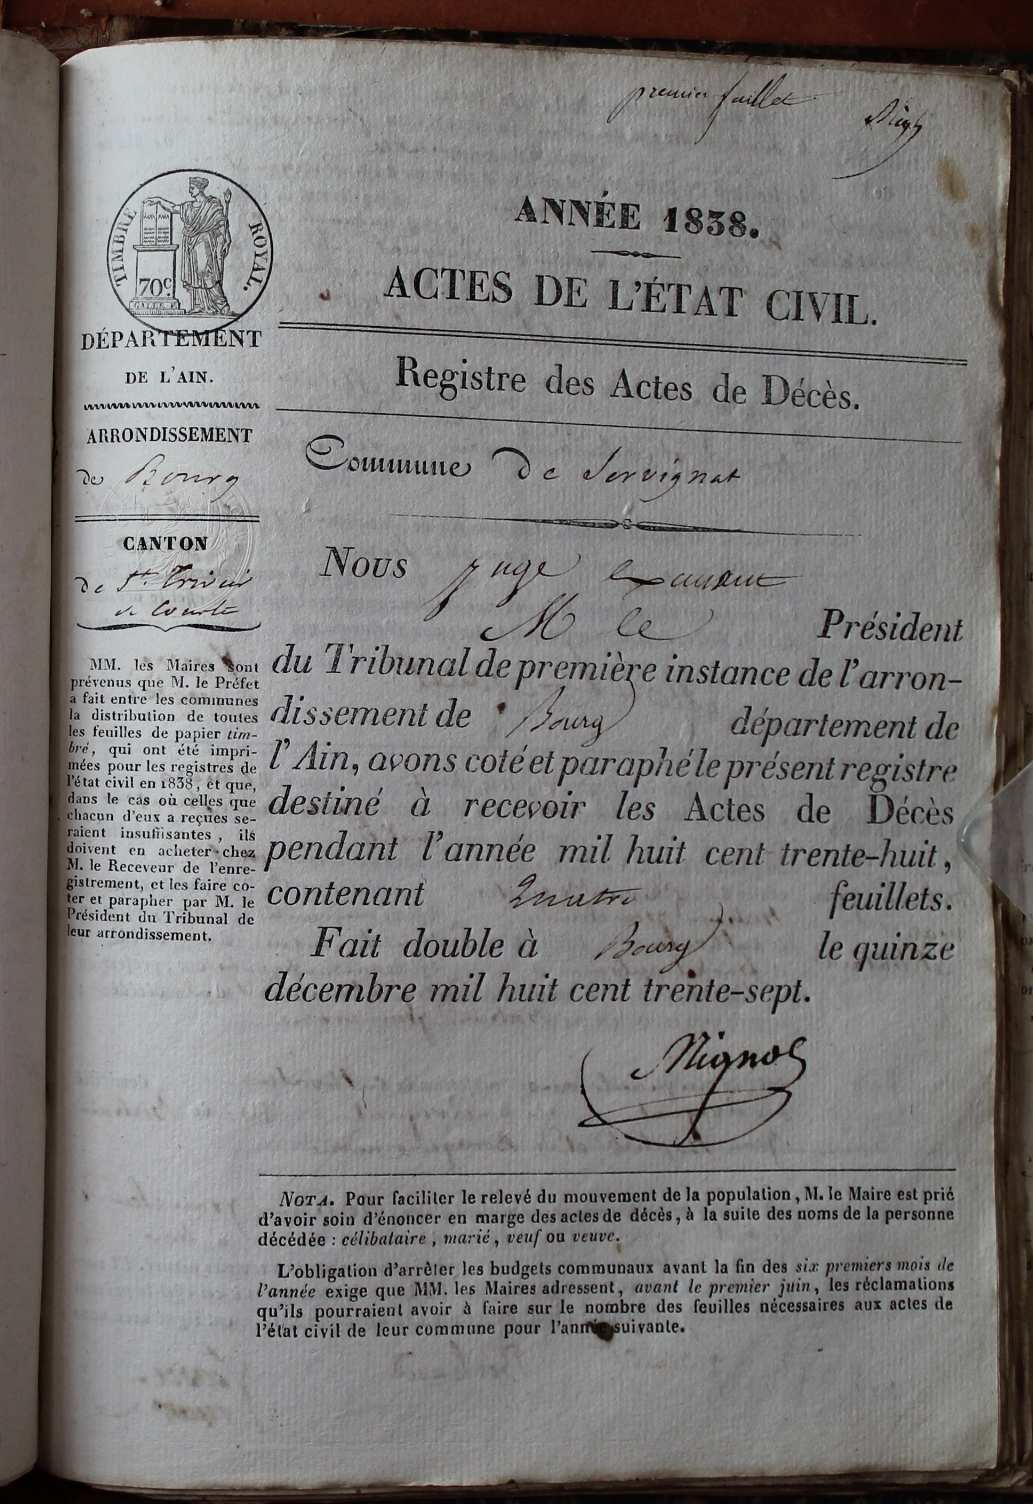 premier feuillet
TIMBRE ROYAL.
70c.
ANNÉE 1838.
ACTES DE L'ÉTAT CIVIL.
DÉPARTEMENT
DE L'AIN.
ARRONDISSEMENT
de Bourg
CANTON
de St. Trivier
de Courtes
MM. les Maires sont
prévenus que M. le Préfet
a fait entre les communes
la distribution de toutes
les feuilles de papier tim-
bré, qui ont été impri-
mées pour les registres de
l'état civil en 1838, et que,
dans le cas où celles que
chacun d'eux a reçues se-
raient insuffisantes, ils
doivent en acheter chez
M. le Receveur de l'enre-
gistrement, et les faire co-
ter et parapher par M. le
Président du Tribunal de
leur arrondissement.
Registre des Actes de Décès.
Commune De Servignat
Nous juge
M le Président
du Tribunal de première instance de l'arron-
dissement de Bourg département de
l'Ain, avons coté et paraphé le présent registre
destiné à recevoir les Actes de Décès
pendant l'année mil huit cent trente-huit,
contenant Quatre feuillets.
Fait double à Bourg le quinze
décembre mil huit cent trente-sept.
NOTA. Pour faciliter le relevé du mouvement de la population, M. le Maire est prié
d'avoir soin d'énoncer en marge des actes de décès, à la suite des noms de la personne
décédée : célibataire, marié, veuf ou veuve.
L'obligation d'arrêter les budgets communaux avant la fin des six premiers mois de
l'année exige que MM. les Maires adressent, avant le premier juin, les réclamations
qu'ils pourraient avoir à faire sur le nombre des feuilles nécessaires aux actes de
l'état civil de leur commune pour l'année suivante.